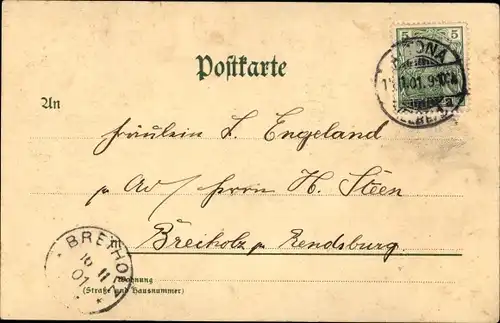 5 5
ALTONA
1.01.9-10
Postkarte
An
Fräulein L. Engeland
p Ad/ Herrn H. Steen
Breiholz p Rendsburg.
BREIHOLZ
11
01
Wohnung
(Straße und Hausnummer)